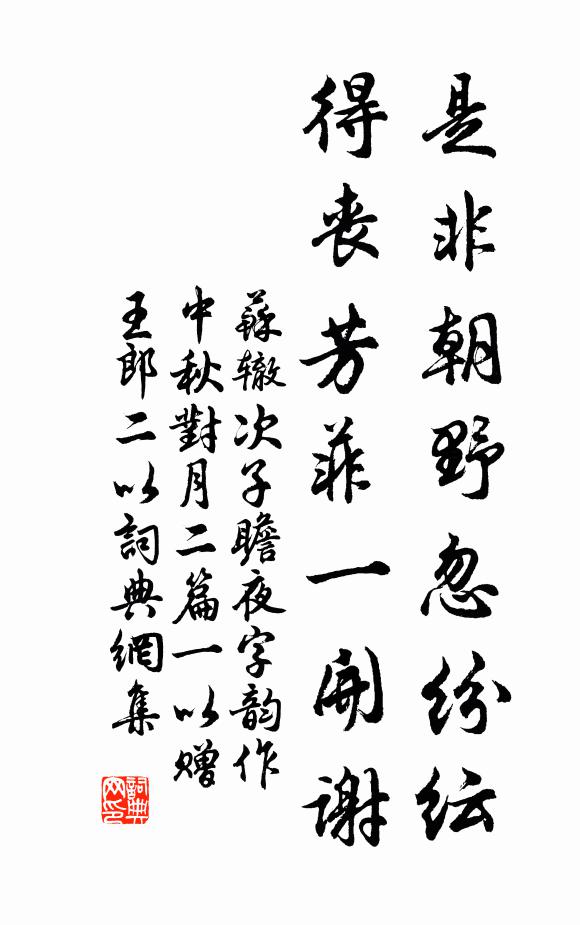 是非朝野忽紛紜
得喪芳菲一開謝
蘇轍次子瞻夜字韵作
中秋對月二篇一以贈
王郎二以詞典網集
詞典
网印